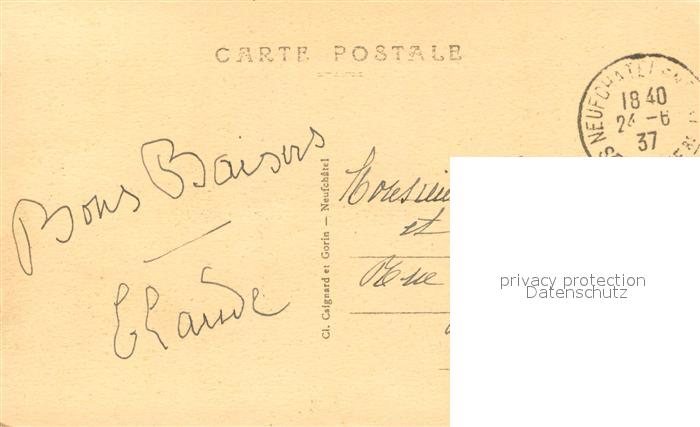 CARTE POSTALE
NEUFCHATEL EN
18 40
24 -6
37
Bons Baisers
Claude
Cl. Caignard et Gorin — Neufchâtel
Monsieur
et
Rue
privacy protection
Datenschutz